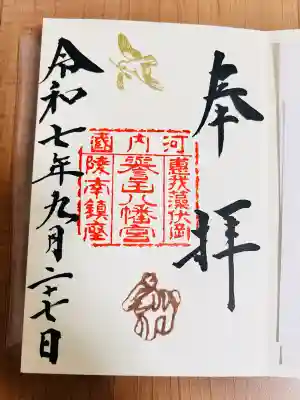 奉拝
河内國
惠我藻伏岡
譽田八幡宮
陵南鎮座
令和七年九月二十七日